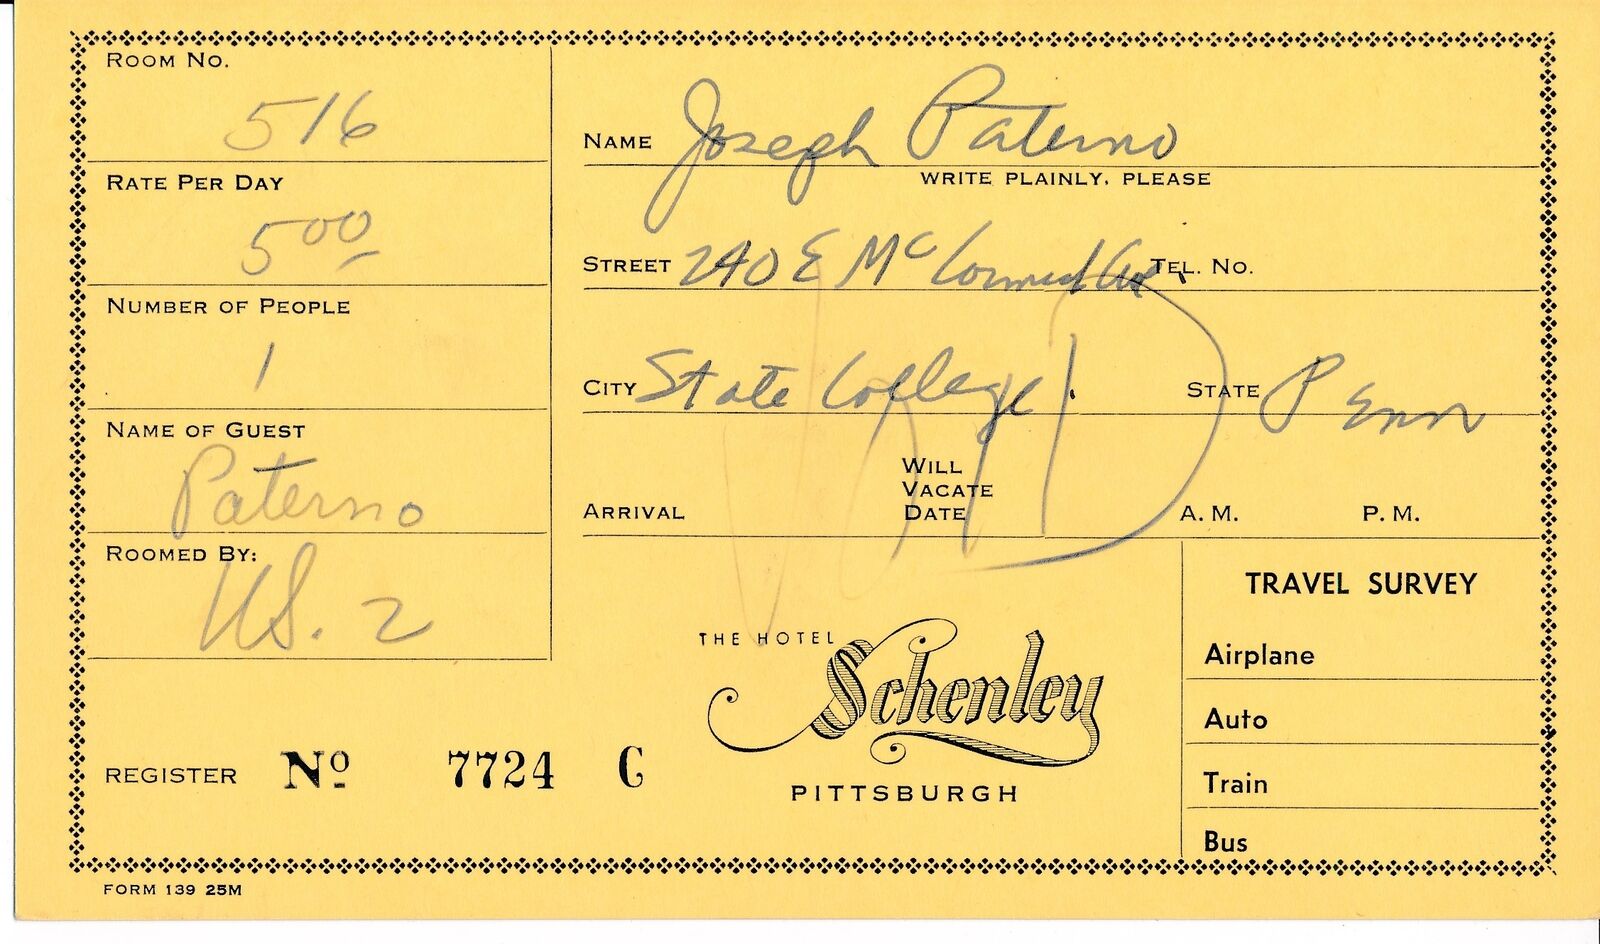 ROOM NO.
516
RATE PER DAY
5 00
NUMBER OF PEOPLE
1
NAME OF GUEST
Paterno
ROOMED BY:
2
REGISTER No 7724 C
FORM 139 25M
NAME Joseph Paterno
WRITE PLAINLY, PLEASE
STREET 240 E McCormick Ave TEL. NO.
CITY State College STATE Penn
ARRIVAL WILL VACATE DATE A. M. P. M.
THE HOTEL
Schenley
PITTSBURGH
TRAVEL SURVEY
Airplane
Auto
Train
Bus